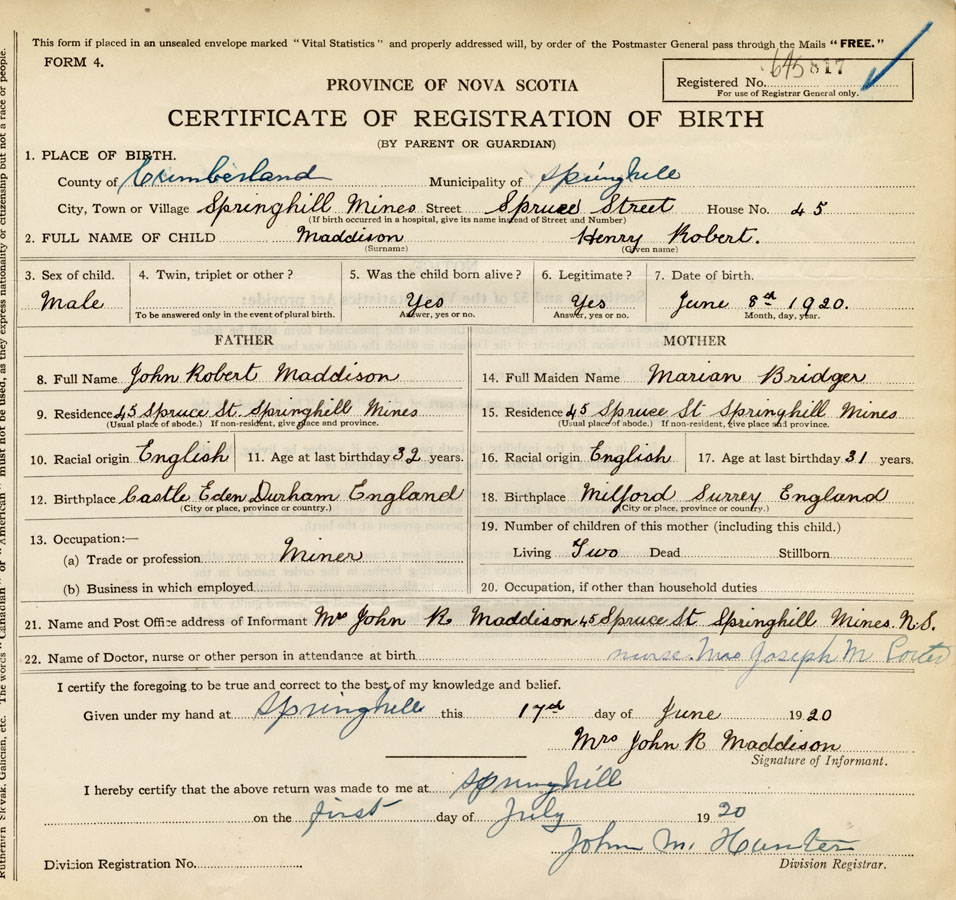 This form if placed in an unsealed envelope marked "Vital Statistics" and properly addressed will, by order of the Postmaster General pass through the Mails "FREE."
FORM 4.
645817
Registered No.
For use of Registrar General only.
PROVINCE OF NOVA SCOTIA
CERTIFICATE OF REGISTRATION OF BIRTH
(BY PARENT OR GUARDIAN)
1. PLACE OF BIRTH.
County of Cumberland Municipality of Springhill
City, Town or Village Springhill Mines Street Spruce Street House No. 45
(If birth occurred in a hospital, give its name instead of Street and Number)
2. FULL NAME OF CHILD Maddison Henry Robert.
(Surname) (Given name)
3. Sex of child. 4. Twin, triplet or other? 5. Was the child born alive? 6. Legitimate? 7. Date of birth.
Male Yes Yes June 8rd 1920.
To be answered only in the event of plural birth. Answer, yes or no. Answer, yes or no. Month, day, year.
FATHER MOTHER
8. Full Name John Robert Maddison 14. Full Maiden Name Marian Bridger
9. Residence 45 Spruce St. Springhill Mines 15. Residence 45 Spruce St Springhill Mines
(Usual place of abode.) If non-resident, give place and province. (Usual place of abode.) If non-resident, give place and province.
10. Racial origin English 11. Age at last birthday 32 years. 16. Racial origin English 17. Age at last birthday 31 years.
12. Birthplace Castle Eden Durham England 18. Birthplace Milford Surrey England
(City or place, province or country.) (City or place, province or country.)
13. Occupation:— 19. Number of children of this mother (including this child.)
(a) Trade or profession Miner Living Two Dead Stillborn
(b) Business in which employed 20. Occupation, if other than household duties
21. Name and Post Office address of Informant Mrs John R Maddison 45 Spruce St Springhill Mines. N.S.
22. Name of Doctor, nurse or other person in attendance at birth nurse Mrs Joseph M Porter
I certify the foregoing to be true and correct to the best of my knowledge and belief.
Given under my hand at Springhill this 17rd day of June 1920
Mrs John R Maddison
Signature of Informant.
I hereby certify that the above return was made to me at Springhill
on the first day of July 1920
John M. Hunter
Division Registration No. Division Registrar.
Ruthenen Slovak, Galician, etc. The words "Canadian" or "American" must not be used, as they express nationality or citizenship but not a race or people.